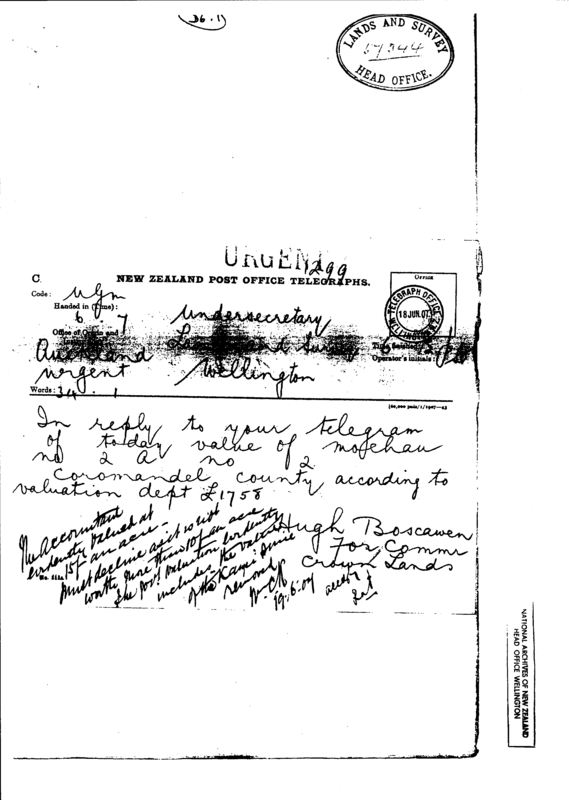 D6.1
LANDS AND SURVEY
57344
HEAD OFFICE.
URGENT
1299
C.
NEW ZEALAND POST OFFICE TELEGRAPHS.
Office
Code: Ugm
Handed in (Time):
6. 7
Undersecretary
TELEGRAPH OFFICE
18 JUN. 07
WELLINGTON
Office of Origin and
Lands and Survey
Auckland
Operator's initials:
urgent
Wellington
Words: 34. 1
In reply to your telegram
of today value of moehau
no 2 A no 2
Coromandel county according to
valuation dept £1758
Hugh Boscawen
For Commr
Crown Lands
The Accountant
Evidently valued at
15/- an acre.
Must decline as it is not
worth more than 10/- an acre
The Govt valuation evidently
includes the value
of the Kauri since
removed
19.6.07
NATIONAL ARCHIVES OF NEW ZEALAND
HEAD OFFICE WELLINGTON